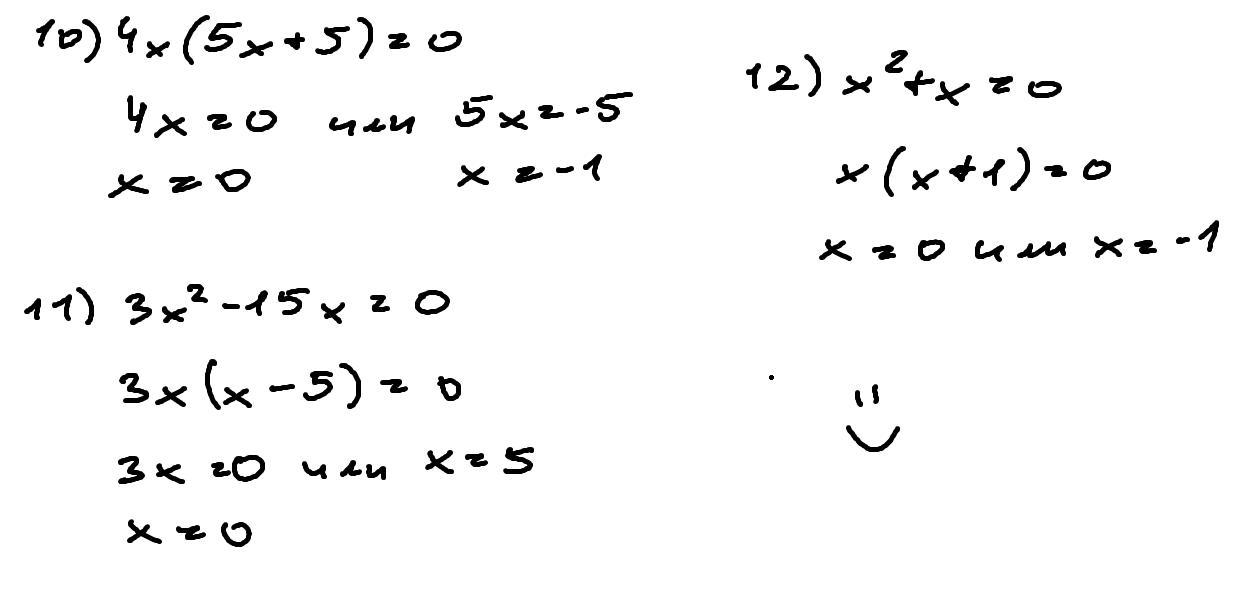 10) 4x(5x+5)=0
4x=0 или 5x=-5
x=0 x=-1
11) 3x²-15x=0
3x(x-5)=0
3x=0 или x=5
x=0
12) x²+x=0
x(x+1)=0
x=0 или x=-1